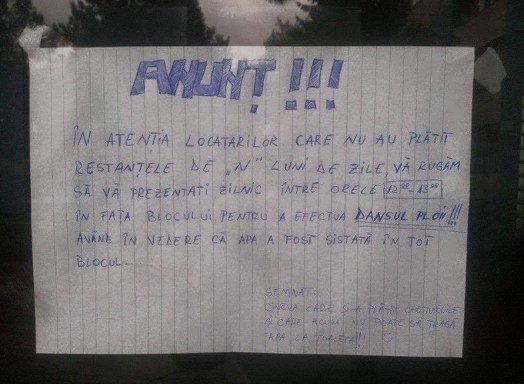 ANUNȚ !!!
ÎN ATENTIA LOCATARILOR CARE NU AU PLĂTIT
RESTANȚELE DE „N" LUNI DE ZILE, VĂ RUGĂM
SĂ VĂ PREZENTATI ZILNIC ÎNTRE ORELE 12⁰⁰-13⁰⁰
ÎN FAȚA BLOCULUI PENTRU A EFECTUA DANSUL PLOII!!!
AVÂND ÎN VEDERE CĂ APA A FOST SISTATĂ ÎN TOT
BLOCUL.
SEMNAT:
CINEVA CARE Ș-A PLĂTIT CHELTUIELILE
Ș CARE ACUM NU POATE SĂ TRAGĂ
APA LA TOALETĂ!!!